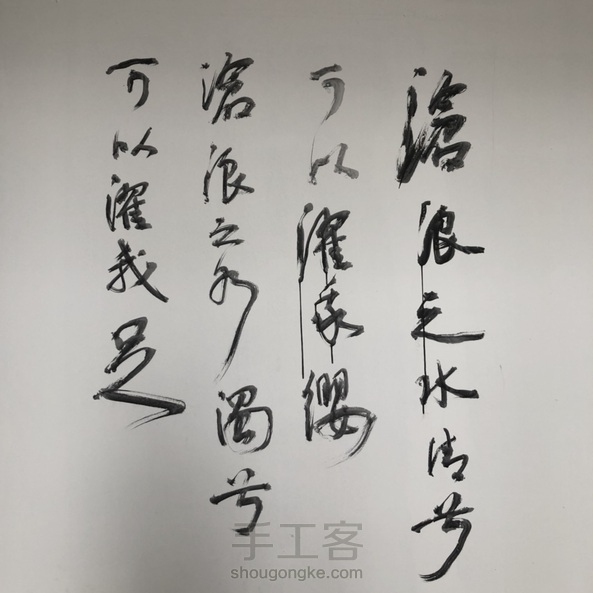 滄浪之水清兮
可以濯我纓
滄浪之水濁兮
可以濯我足
手工客
shougongke.com